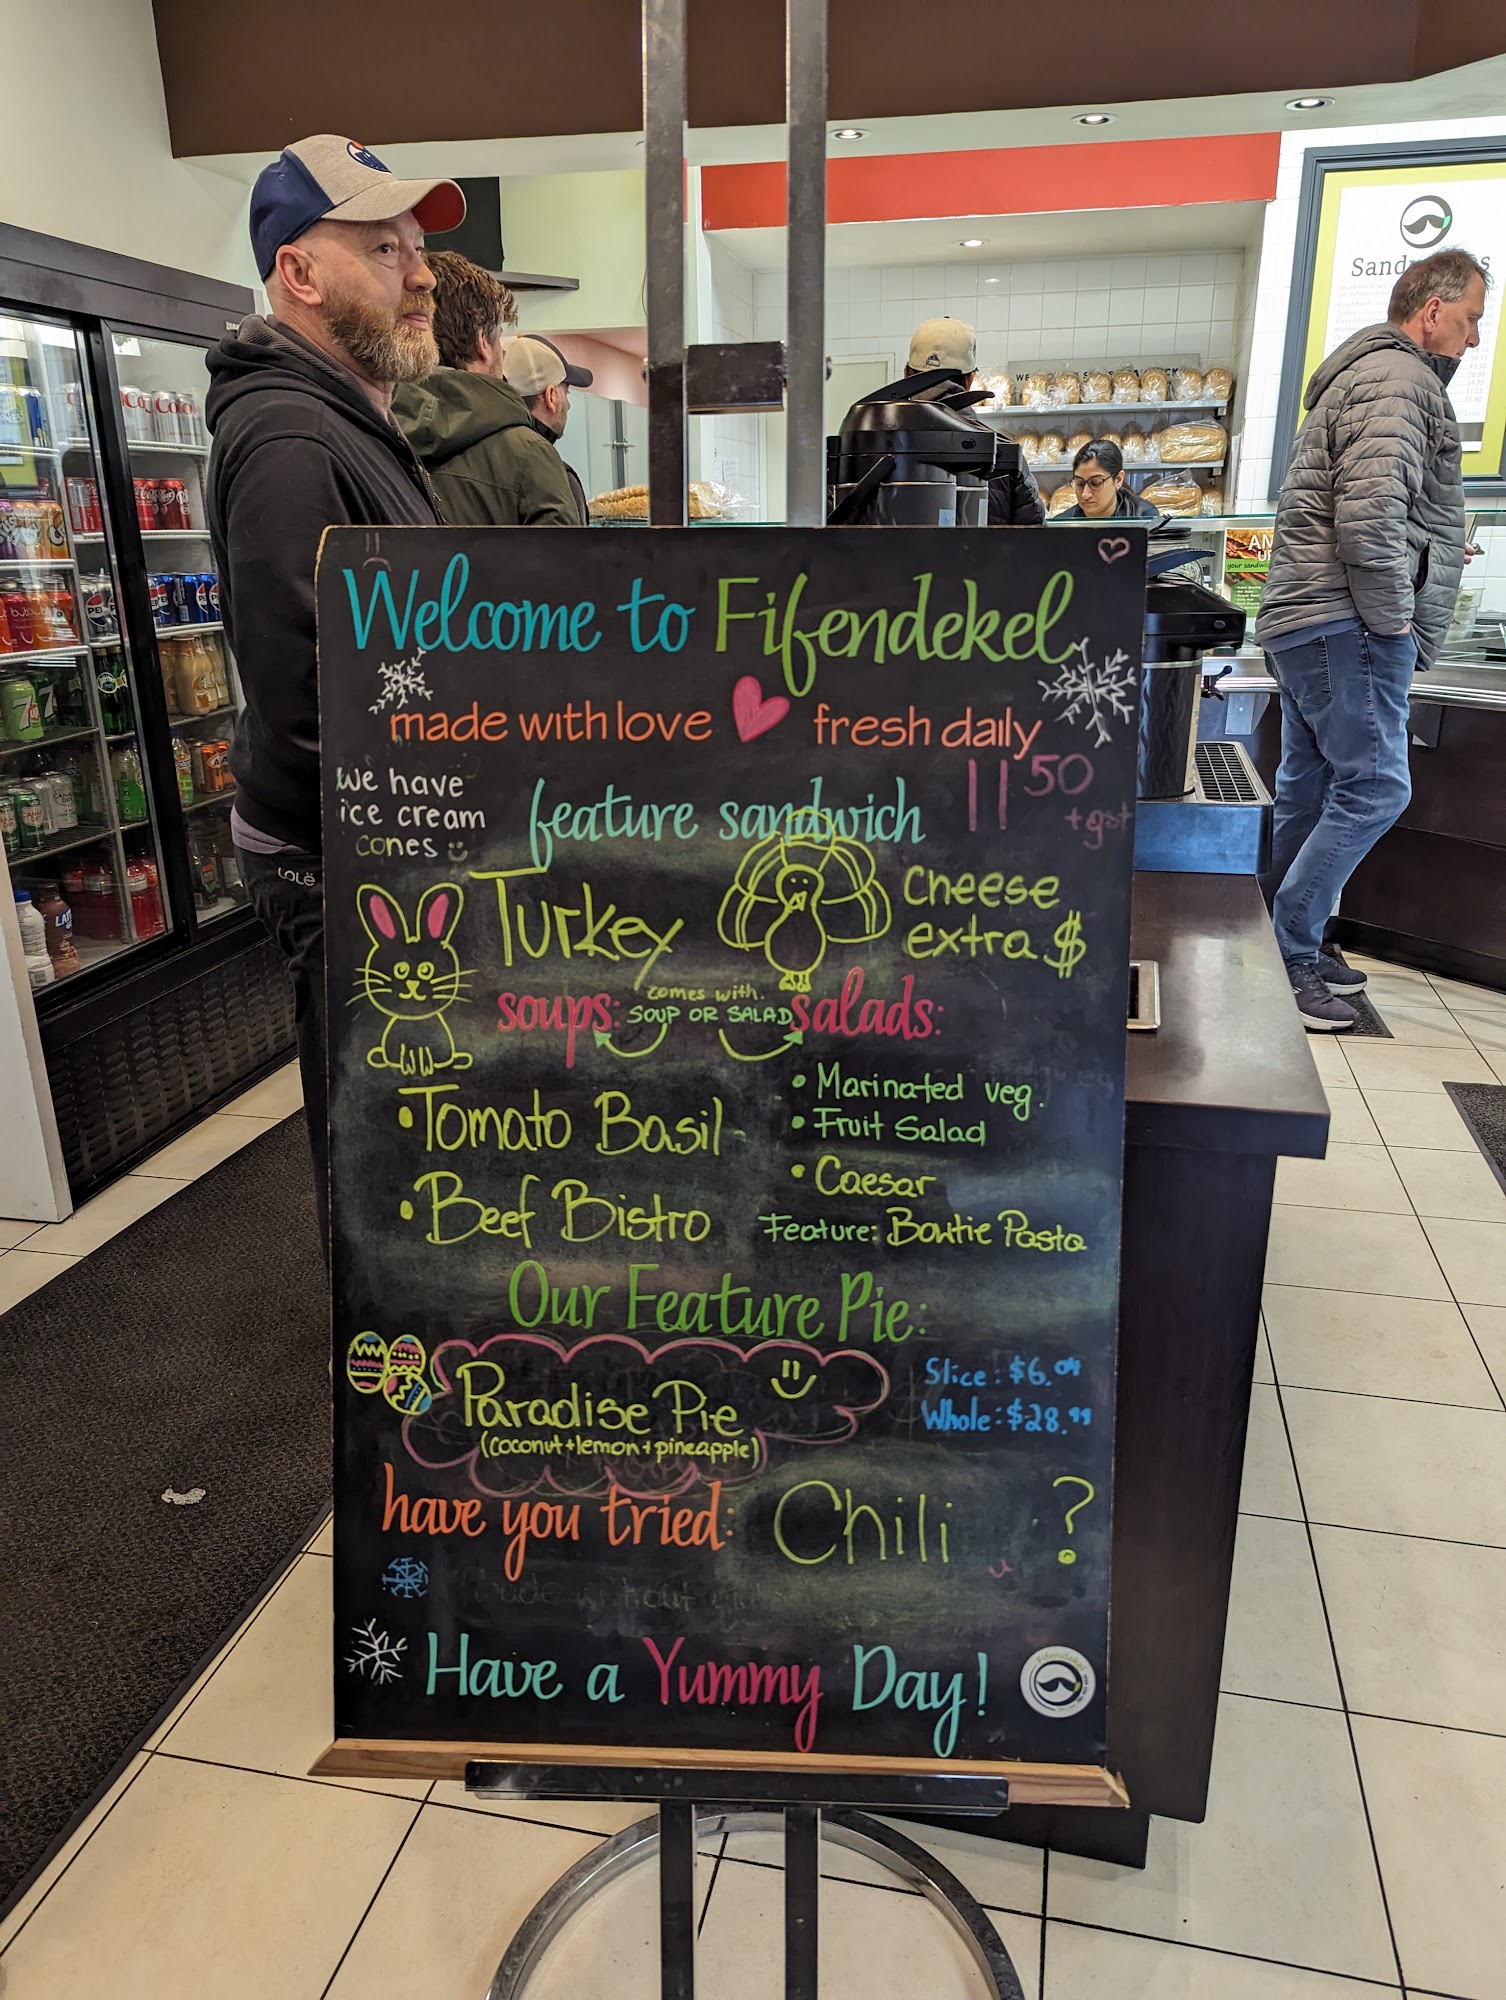 Welcome to Fifendekel
made with love fresh daily
we have
ice cream
cones
feature sandwich 11 50
+gst
Turkey
Cheese
extra $
soups: comes with salads:
SOUP OR SALAD
• Tomato Basil
• Beef Bistro
• Marinated veg.
• Fruit Salad
• Caesar
Feature: Bowtie Pasta
Our Feature Pie:
Paradise Pie
(coconut+lemon+pineapple)
Slice: $6.04
Whole: $28.99
have you tried: Chili ?
Have a Yummy Day!
Fifendekel
LOLË